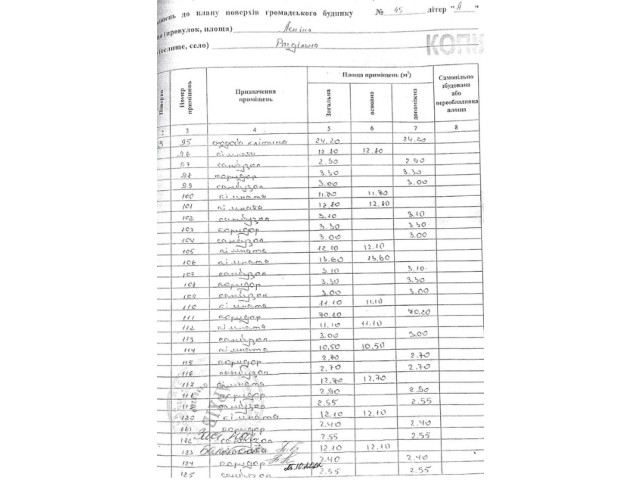 до плану поверхів громадського будинку № 45 літер "А"
(провулок, площа) Леніна
село) Роздільна
КОПІ
Поверх Номер приміщень Призначення приміщень Площа приміщень (м²) Самовільно збудована або переобладнана площа
Загальна основна допоміжна
2 3 4 5 6 7 8
95 сходова клітина 24.20 24.20
96 кімната 12.80 12.80
97 санвузол 2.90 2.90
98 коридор 3.30 3.30
99 санвузол 3.00 3.00
100 кімната 11.70 11.70
101 кімната 12.80 12.80
102 санвузол 3.10 3.10
103 коридор 3.30 3.30
104 санвузол 3.00 3.00
105 кімната 12.10 12.10
106 кімната 13.60 13.60
107 санвузол 3.10 3.10
108 коридор 3.30 3.30
109 санвузол 3.00 3.00
110 кімната 11.10 11.10
111 коридор 70.20 70.20
112 кімната 11.10 11.10
113 санвузол 3.00 3.00
114 кімната 10.50 10.50
115 коридор 2.70 2.70
116 санвузол 2.70 2.70
117 кімната 12.70 12.70
118 коридор 2.90 2.90
119 санвузол 2.55 2.55
120 кімната 12.10 12.10
121 коридор 2.40 2.40
122 санвузол 2.55 2.55
123 12.10 12.10
124 коридор 2.40 2.40
125 санвузол 2.55 2.55